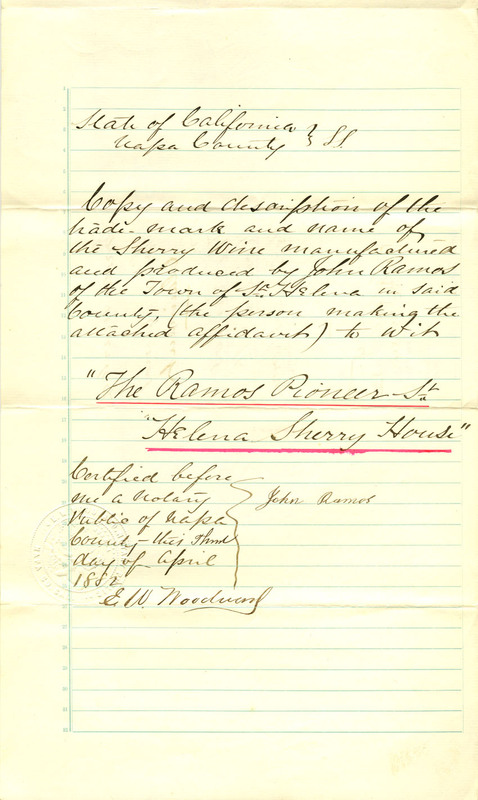 State of California } SS
Napa County
Copy and description of the
trade-mark and name of
the Sherry Wine manufactured
and produced by John Ramos
of the Town of St. Helena in said
County, (the person making the
attached affidavit) to wit
"The Ramos Pioneer St.
"Helena Sherry House"
Certified before
me a Notary
Public of Napa
County this Third
day of April
1882
E. W. Woodward
John Ramos